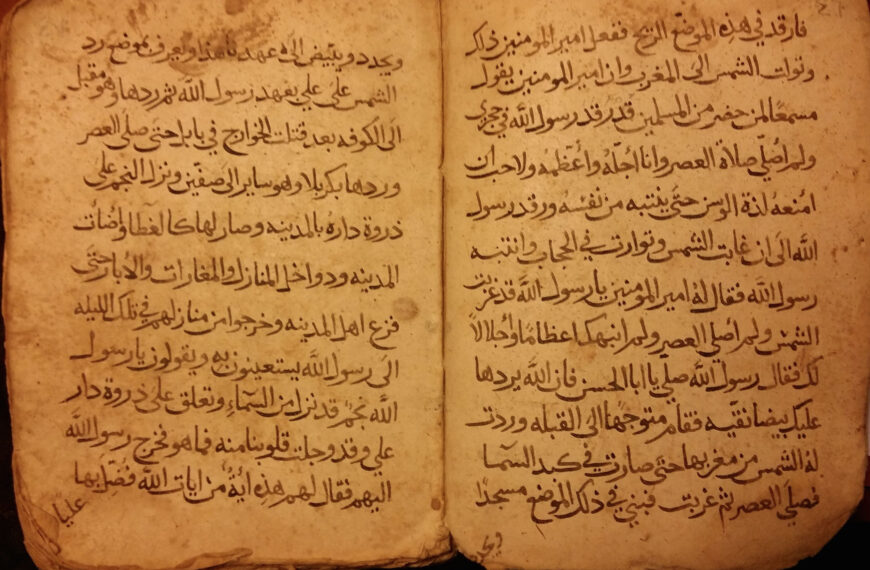 فارقد في هذه الموضع الريح ففعل امير المومنين ذلك
وتولت الشمس الى المغرب وان امير المومنين يقول
مسمعًا لمن حضر من المسلمين قد رقد رسول الله في حجري
ولم اُصلّي صلاة العصر وانا اجلّهُ وأعظمه ولاحب ان
امنعه لذة الوسن حتى ينتبه من نفسه ورقد رسول
الله الى ان غابت الشمس وتوارت في الحجاب وانتبه
رسول الله فقال لهُ امير المومنين يا رسول الله قد غربت
الشمس ولم اُصلي العصر ولم انبهك اعظامًا واُجلالاً
لك فقال رسول الله صلي يا ابا الحسن فان الله يردها
عليك بيضا نقيّه فقام متوجهًا الى القبله وردت
لهُ الشمس من مغربها حتى صارت في كبد السما
فصلى العصر ثم غربت فبني في ذلك الموضع مسجدًا
ويجدد
ويجدد ويبيّض الى عهد ناهذا ويعرف بموضع رد
الشمس على علي بعهد رسول الله ثم ردها وهو مقبل
الى الكوفه بعد قتلت الخوارج في بابل حتى صلى العصر
وردها بكربلا وهو ساير الى صفين ونزل النجم على
ذروة داره بالمدينه وصار لها كالغطا واضأت
المدينه ودواخل المنازل والمغارات والابار حتى
فزع اهل المدينه وخرجوا من منازلهم في تلك الليله
الى رسول الله يستعينون به ويقولون يا رسول
الله نجمٌ قد نزل من السماء وتعلق على ذروة دار
علي وقد وجلت قلوبنا منه فما هو فخرج رسول الله
اليهم فقال لهم هذه ايةٌ من ايات الله فضل بها
عليا